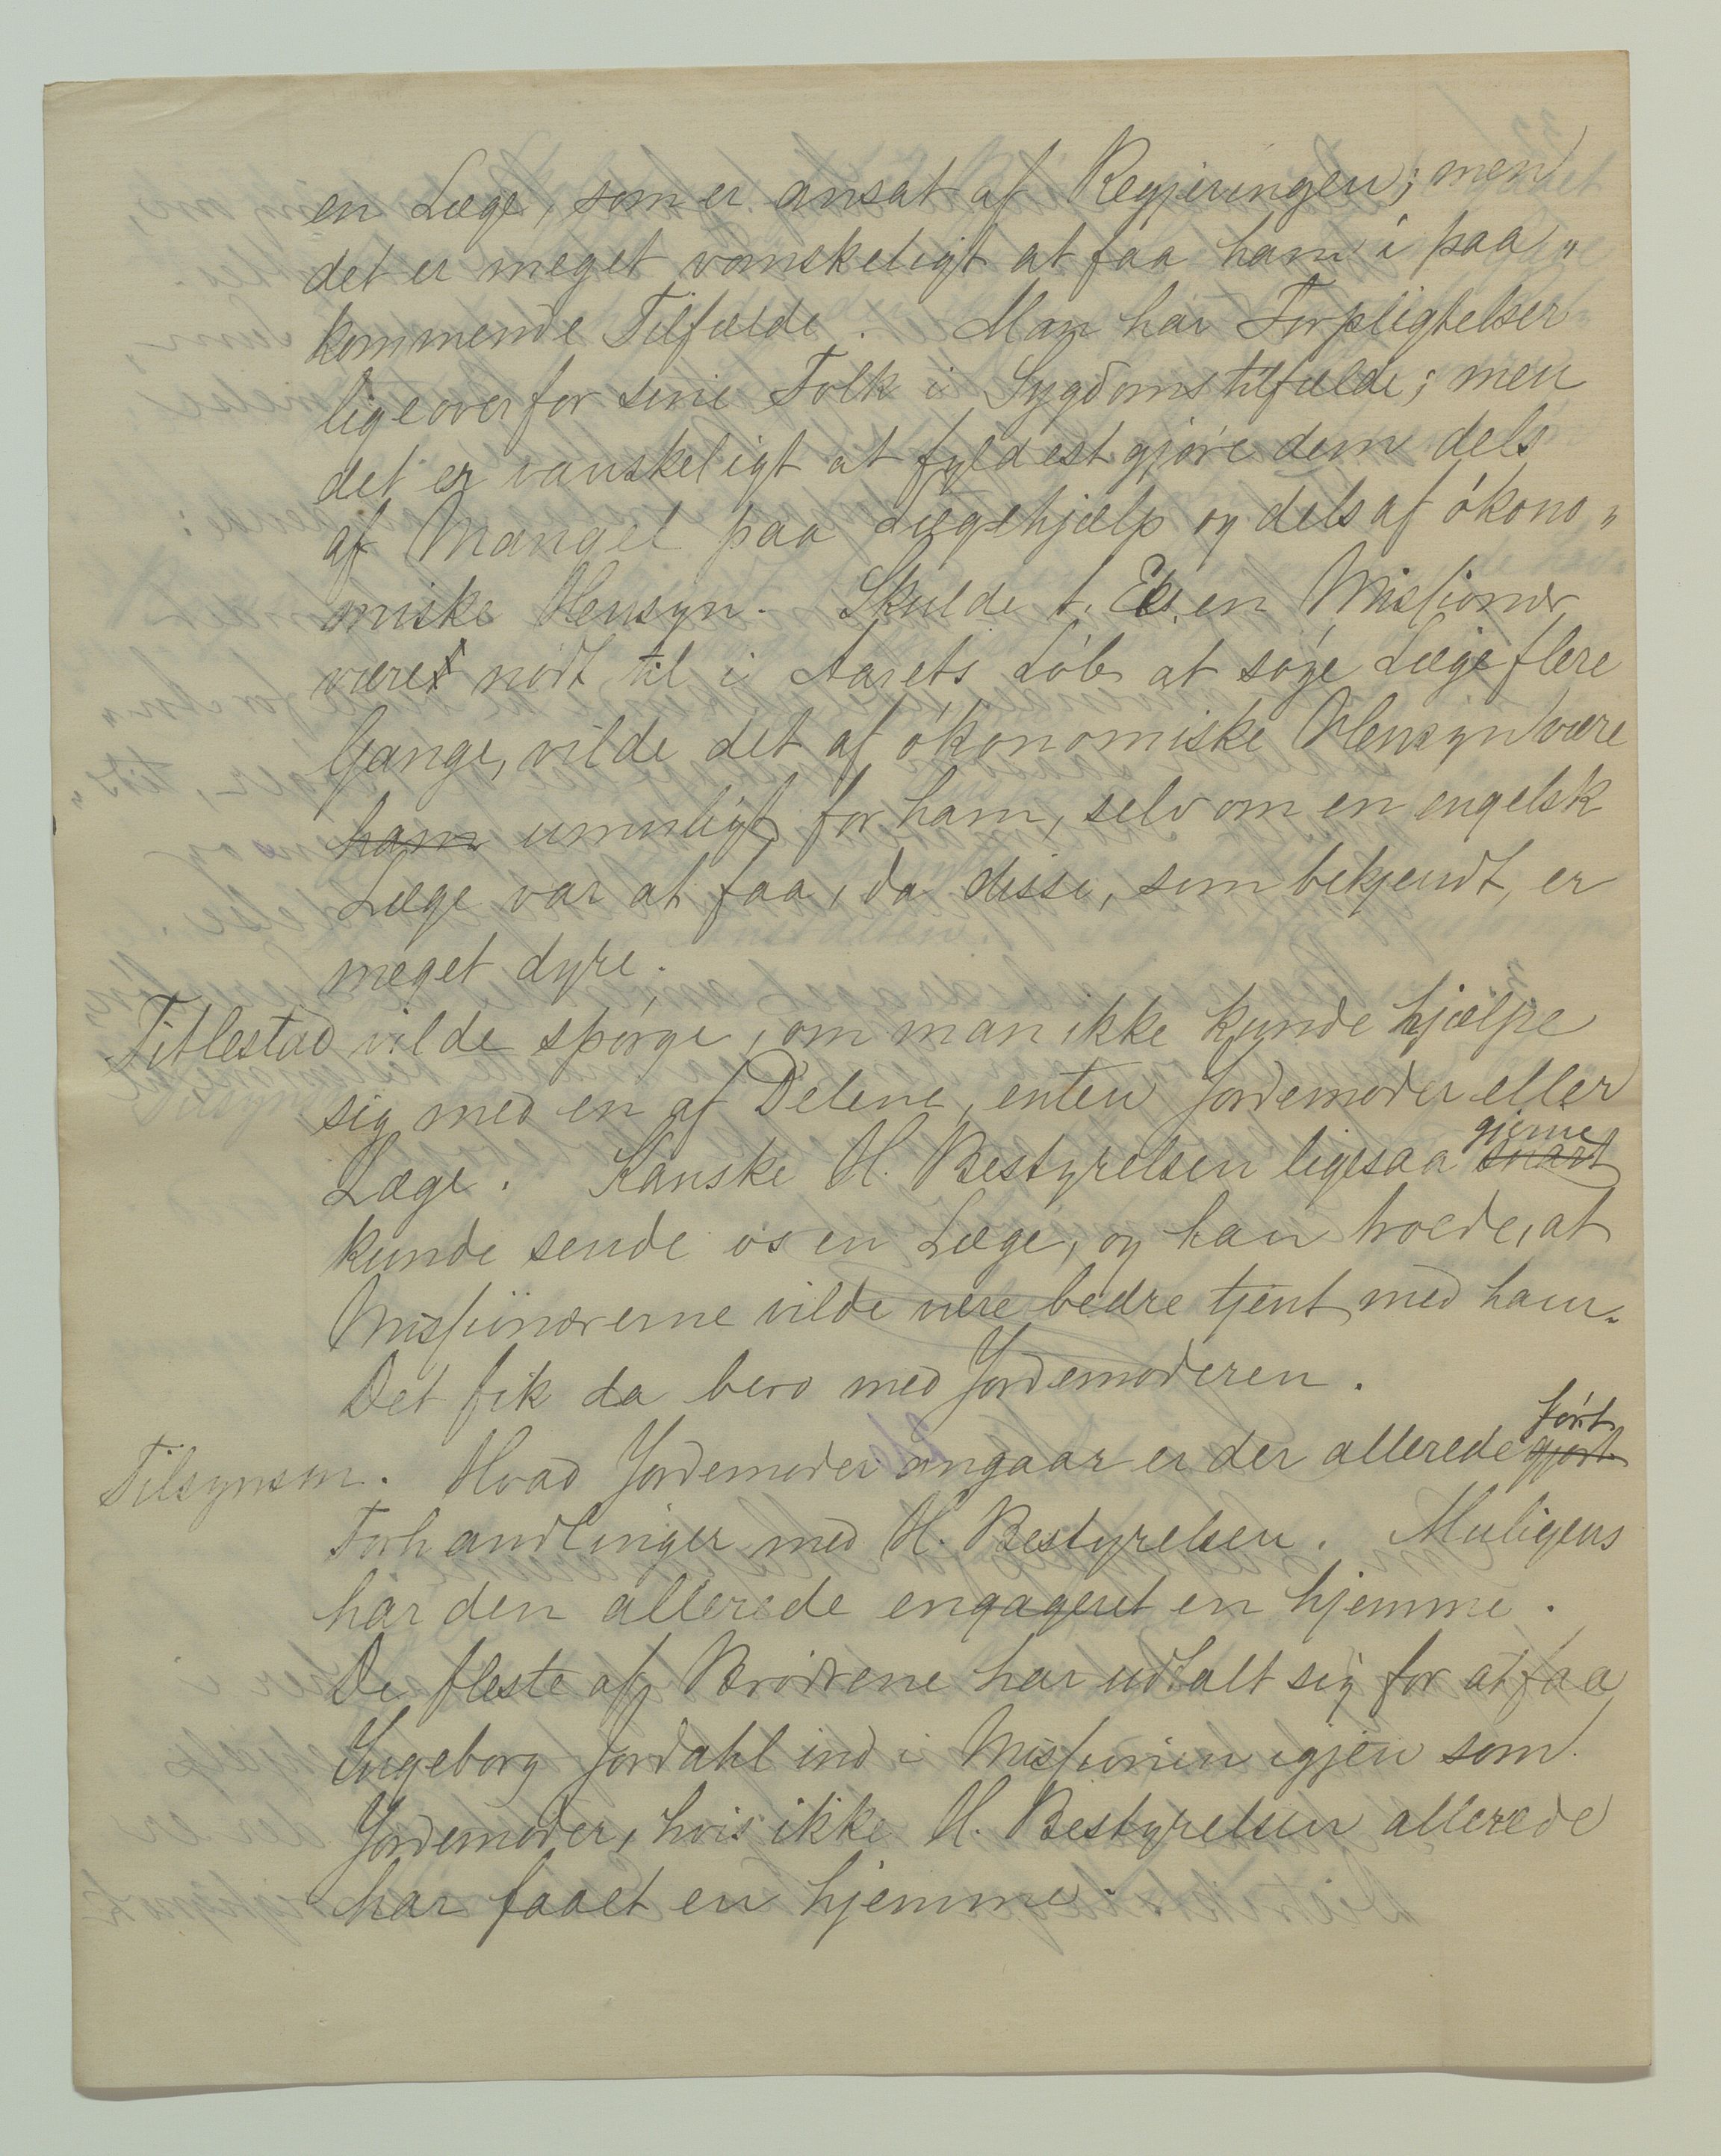 en Læge, som er ansat af Regjeringen; men
det er meget vanskeligt at faa ham i paa„
kommende Tilfælde. Man har Forpligtelser
ligeoverfor sine Folk i Sygdomstilfælde; men
det er vanskeligt at fyldestgjøre dem dels
af Mangel paa Lægehjælp og dels af økono„
miske Hensyn. Skulde t. Ex. en Missionær
være nødt til i Aarets Løb at søge Læge flere
Gange, vilde det af økonomiske Hensyn være
ham umuligt for ham, selv om en engelsk
Læge var at faa, da disse, som bekjendt, er
meget dyre.
Titlestad vilde spørge, om man ikke kunde hjælpe
sig med en af Delene, enten Jordemoder eller
gjerne
Læge. Kanske H. Bestyrelsen ligesaa snart
kunde sende os en Læge, og han troede, at
Missionærerne vilde være bedre tjent med ham.
Det fik da bero med Jordemoderen.
ført
Tilsynsm. Hvad Jordemoder angaar er der allerede gjort
Forhandlinger med H. Bestyrelsen. Muligens
har den allerede engageret en hjemme.
De fleste af Brødrene har udtalt sig for at faa
Ingeborg Jordahl ind i Missionen igjen som
Jordemoder, hvis ikke H. Bestyrelsen allerede
har faaet en hjemme.